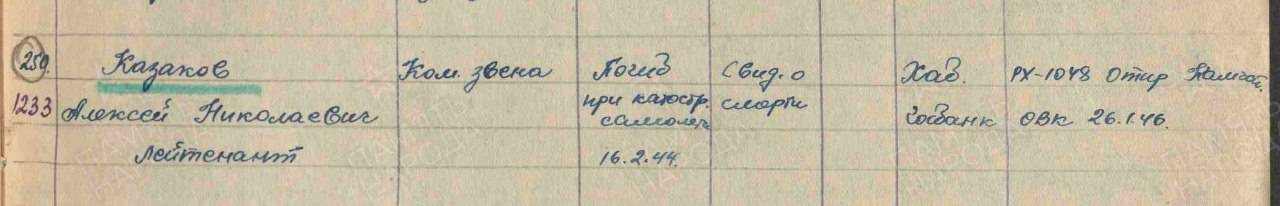 250. Казаков Ком. звена Погиб Свид. о Хаб. РХ-1048 Отпр
1233 Алексей Николаевич при катастр. смерти Госбанк ОВК 26.1.46.
самолета
лейтенант 16.2.44.